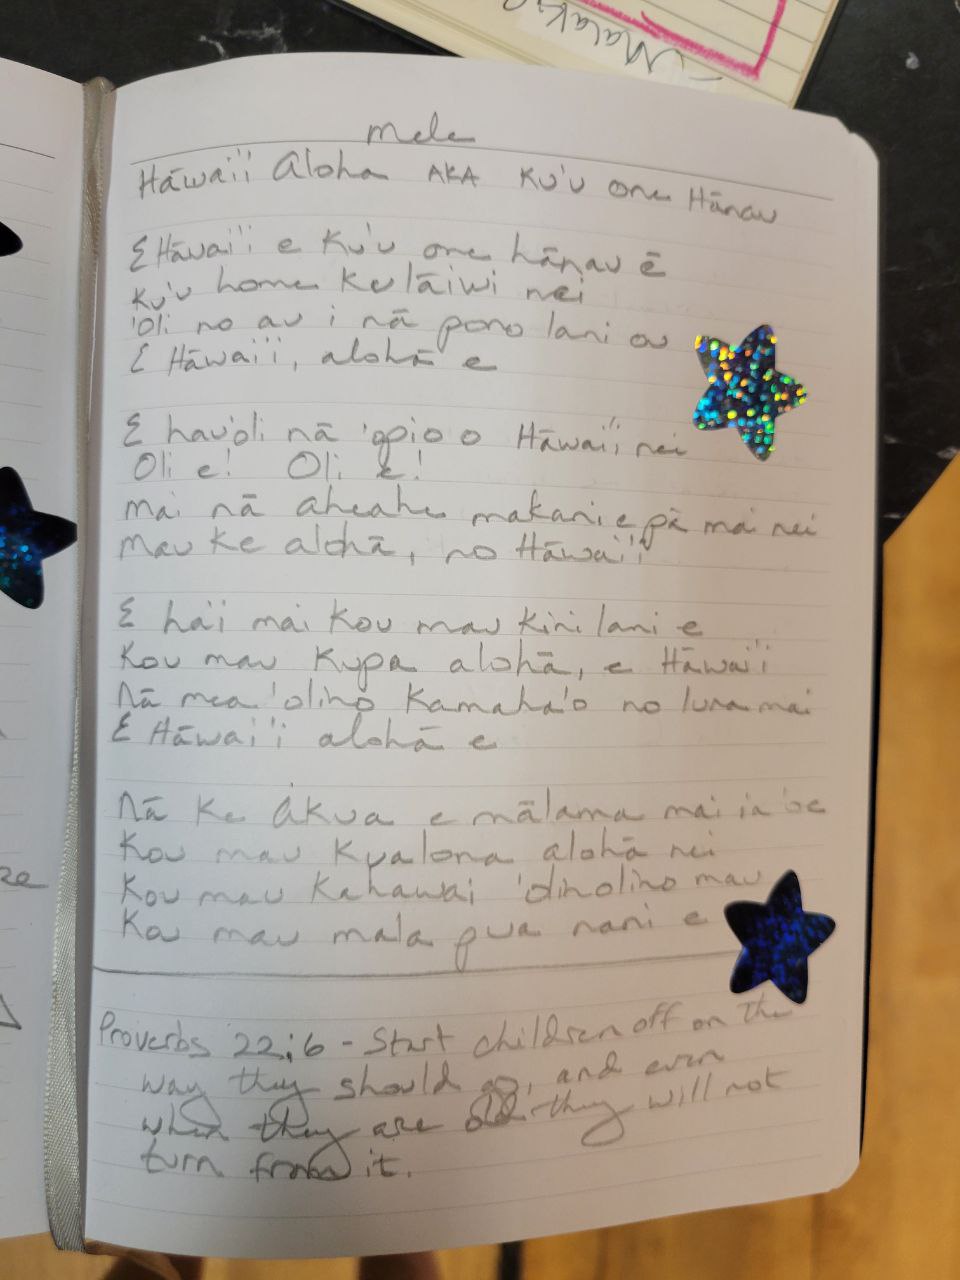 Malaki
Mele
Hāwai'i Aloha AKA Ku'u one Hānau
E Hāwai'i e Ku'u one hānau ē
Ku'u home Kulāiwi nei
'Oli no au i nā pono lani ou
E Hāwai'i, alohā e
E hau'oli nā 'opio o Hāwai'i nei
Oli e! Oli e!
Mai nā aheahe makani e pā mai nei
Mau ke alohā, no Hāwai'i
E ha'i mai Kou mau kini lani e
Kou mau Kupa alohā, e Hāwai'i
Nā mea 'olino Kamaha'o no luna mai
E Hāwai'i alohā e
Nā Ke Akua e mālama mai ia 'oe
Kou mau Kualona alohā nei
Kou mau Kahawai 'olinolino mau
Kou mau mala pua nani e
Proverbs 22:6 - Start children off on the
way they should go, and even
when they are old they will not
turn from it.